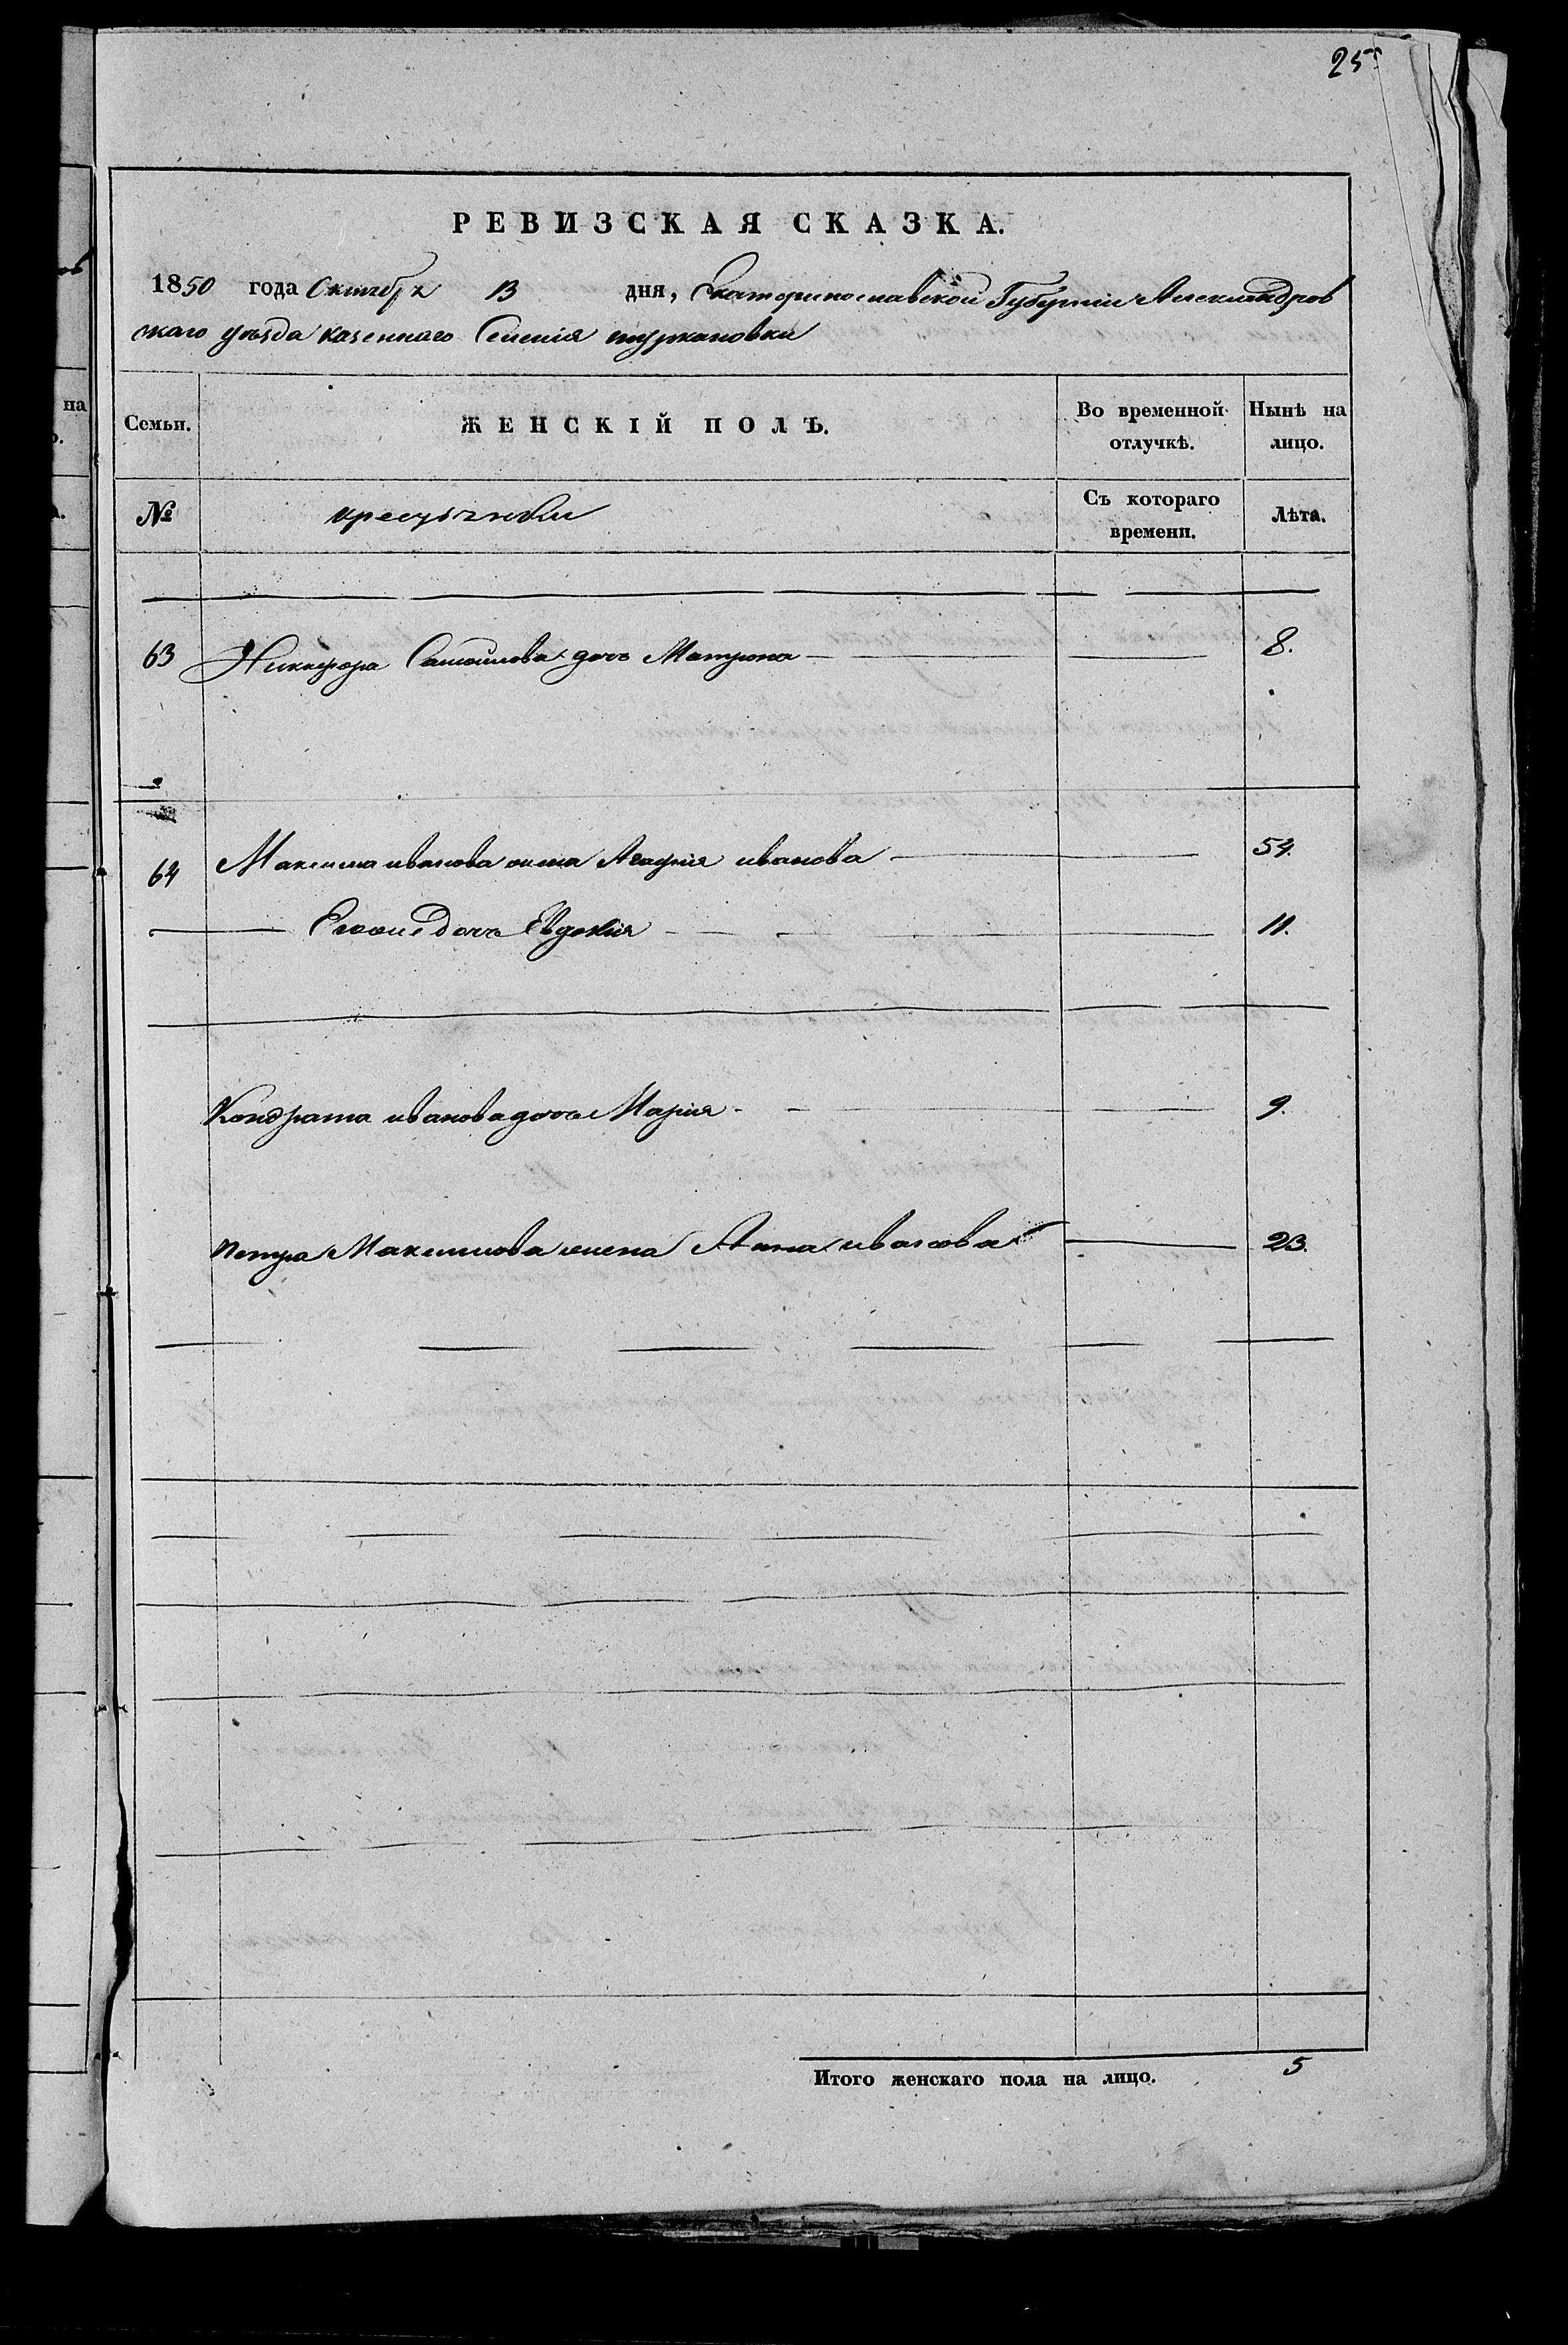 25
РЕВИЗСКАЯ СКАЗКА.
1850 года Октября 13 дня, Екатеринославской Губернии Александров
скаго уезда казеннаго Селения туркановки
Семьи. ЖЕНСКІЙ ПОЛЪ. Во временной отлучкѣ. Нынѣ на лицо.
№ Съ котораго времени. Лѣта.
63 Никифора Самойлова дочь Матрона 8.
64 Максима иванова жена Агафия иванова 54.
Его же дочь Евдокия 11.
Кондрата иванова дочь Мария 9.
петра Максимова жена Анна иванова 23.
Итого женскаго пола на лицо. 5
на